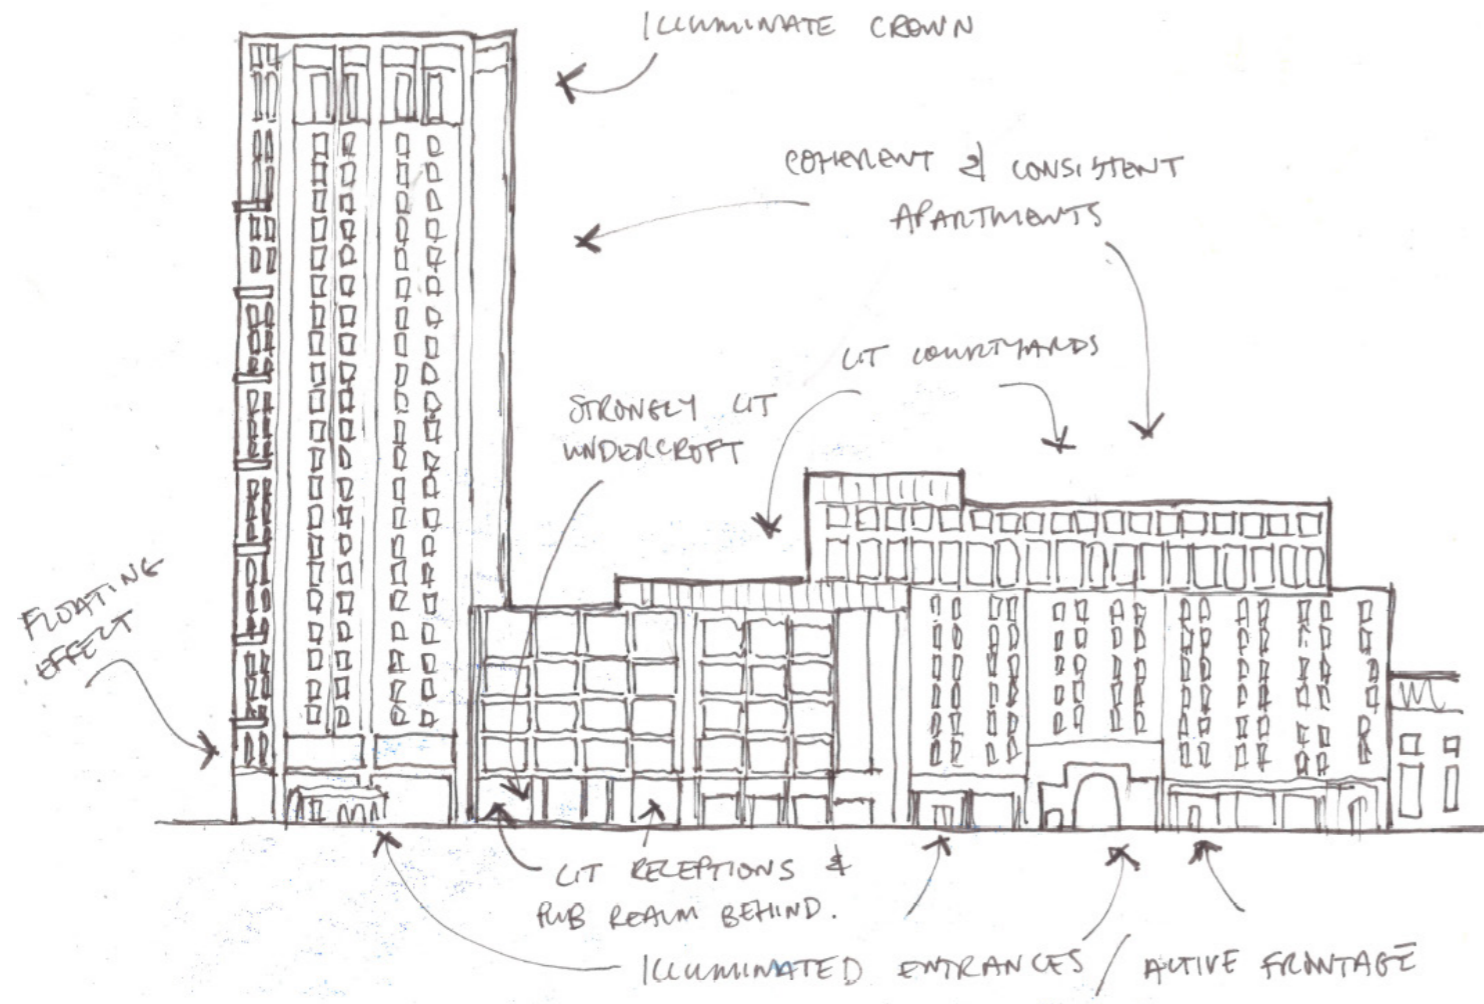 ILLUMINATE CROWN
COHERENT & CONSISTENT
APARTMENTS
LIT COURTYARDS
STRONGLY LIT
UNDERCROFT
FLOATING
EFFECT
LIT RECEPTIONS &
PUB REALM BEHIND.
ILLUMINATED ENTRANCES / ACTIVE FRONTAGE